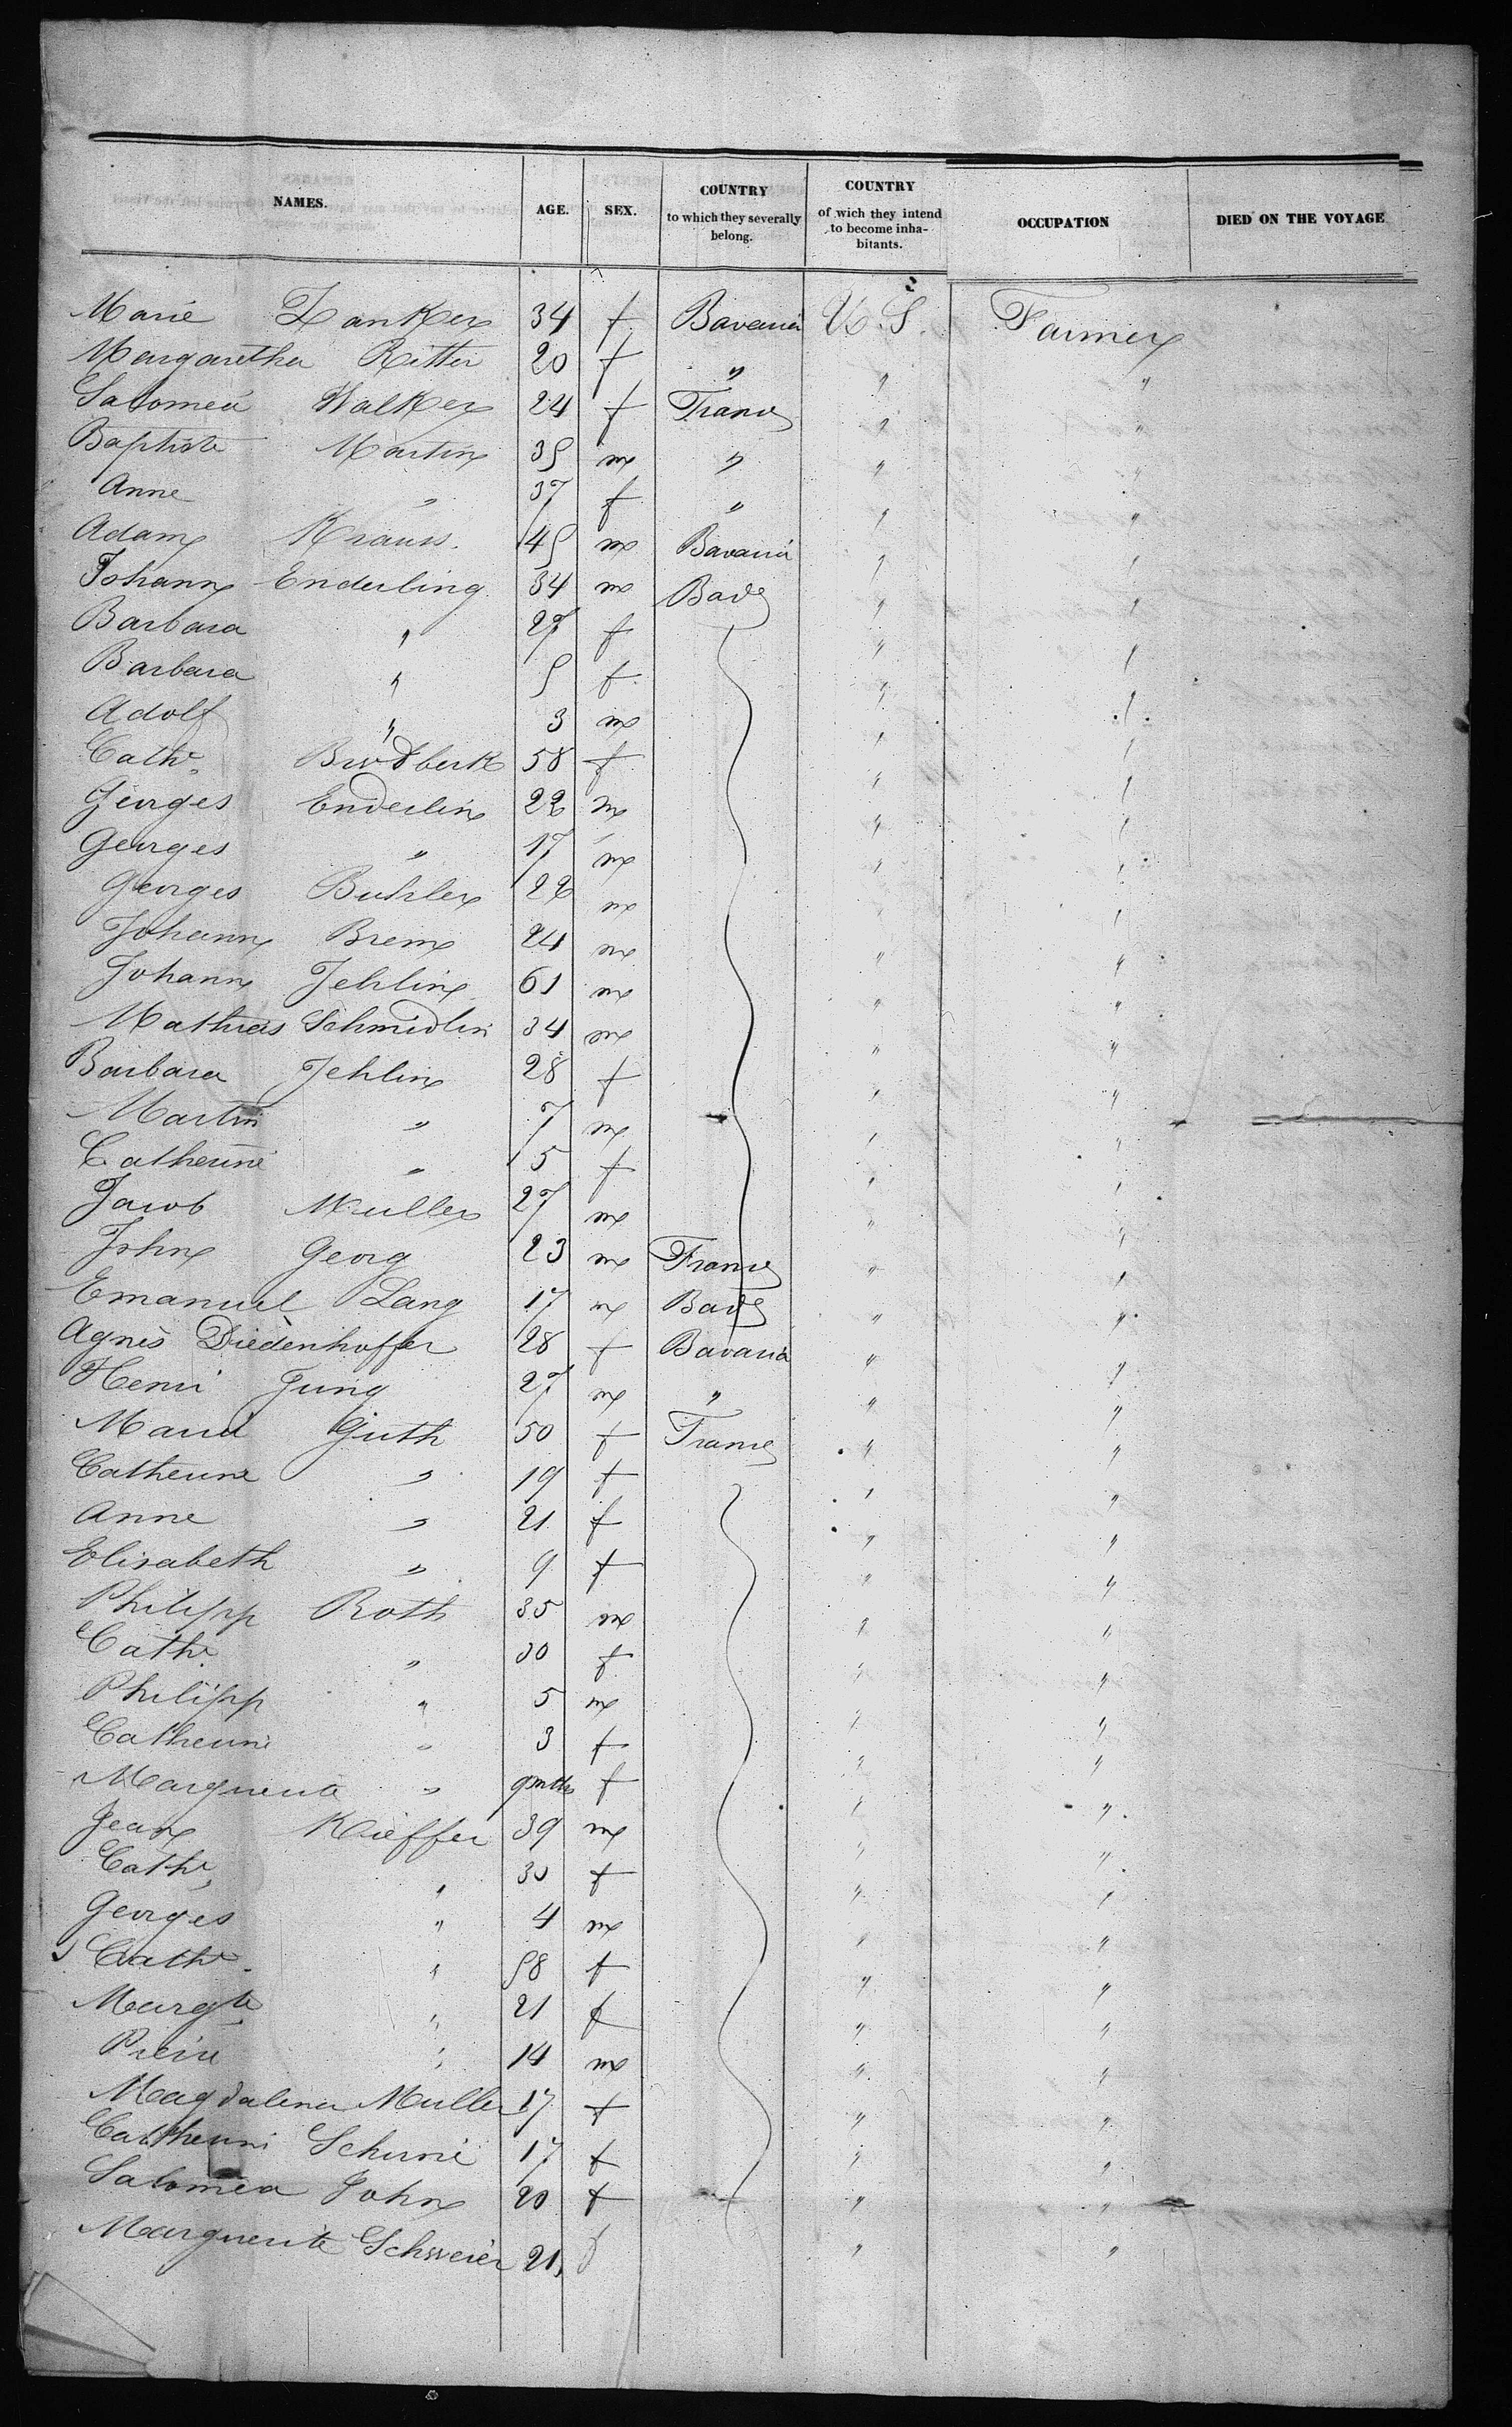 NAMES. AGE. SEX. COUNTRY to which they severally belong. COUNTRY of wich they intend to become inhabitants. OCCUPATION DIED ON THE VOYAGE
Marie Zanker 34 f Bavaria U. S. Farmer
Margaretha Ritter 20 f " " "
Salomea Walker 24 f France " "
Baptiste Martin 35 m " " "
Anne " 37 f " " "
Adam Krauss. 45 m Bavaria " "
Johann Enderling 34 m Bade " "
Barbara " 27 f " "
Barbara " 5 f " "
Adolf " 3 m " "
Cathe. Brodbeck 58 f " "
Georges Enderlin 22 m " "
Georges " 17 m " "
Georges Buhler 22 m " "
Johann Brem 24 m " "
Johann Jehlin 61 m " "
Mathias Schmidlin 34 m " "
Barbara Jehlin 28 f " "
Martin " 7 m " "
Catherine " 5 f " "
Jacob Muller 27 m " "
John Georg 23 m France " "
Emanuel Lang 17 m Bade " "
Agnès Diedenhoffer 28 f Bavaria " "
Henri Jung 27 m " " "
Marie Guth 50 f France " "
Catherine " 19 f " "
Anne " 21 f " "
Elisabeth " 9 f " "
Philipp Roth 35 m " "
Cathe. " 30 f " "
Philipp " 5 m " "
Catherine " 3 f " "
Marguerite " 9 mths f " "
Jean Kieffer 39 m " "
Cathe. " 30 f " "
Georges " 4 m " "
Cathe. " 58 f " "
Margte. " 21 f " "
Pierre " 14 m " "
Magdalena Muller 17 f " "
Catherine 17 f " "
Salomea John 20 f " "
Marguerite Schweier 21 f " "